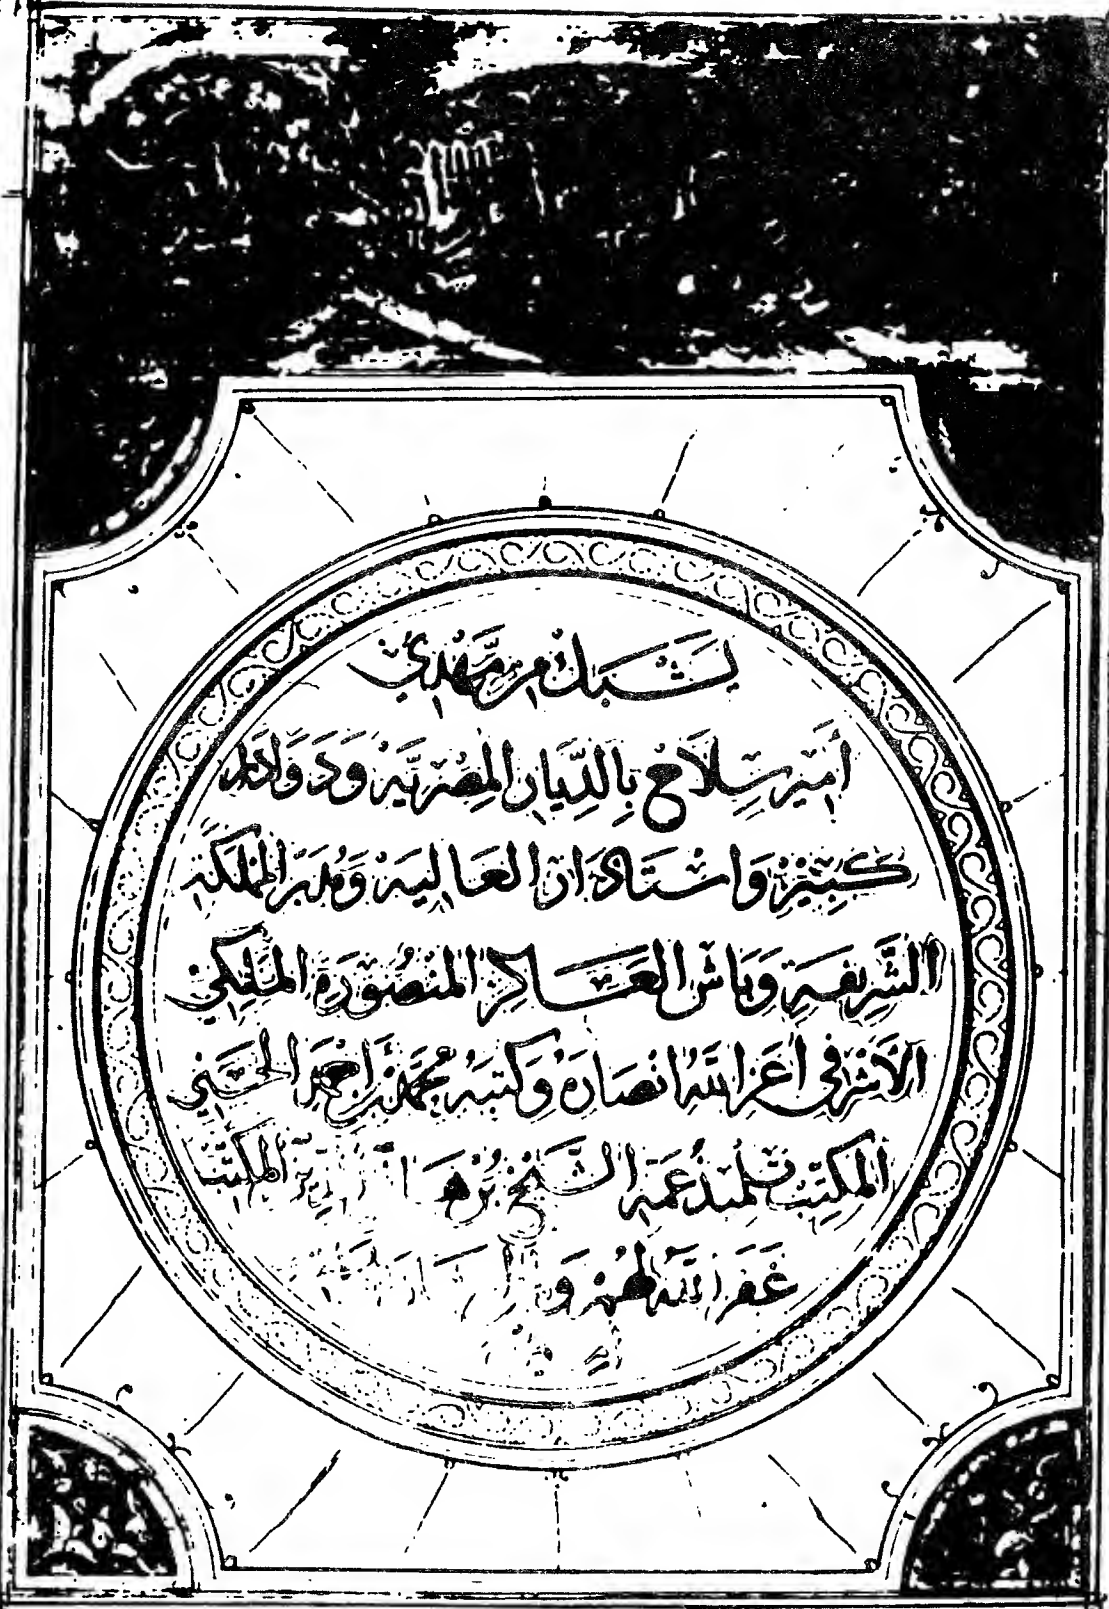 يَشْبَك من مَهْدِي
أمير سِلَاح بِالدِّيَار المِصْرِيَّه وَدَوَادَار
كَبِير وَاسْتَادَار العَالِيَه وَمُدَبّر المَمْلَكَه
الشَّرِيفَه وَبَاش العَسَاكِر المَنْصُورَه المَلَكِي
الأَشْرَفي أعَزَّ اللهُ انْصَارَهُ وَكَتَبَهُ مُحَمَّد بْن أَحْمَد الحَسَنِي
المُكَتِّب تلميذ عَمِّه الشَّيْخ بُرْهَان الدين المكتب
غَفَرَ اللهُ لَهُمْ وَ